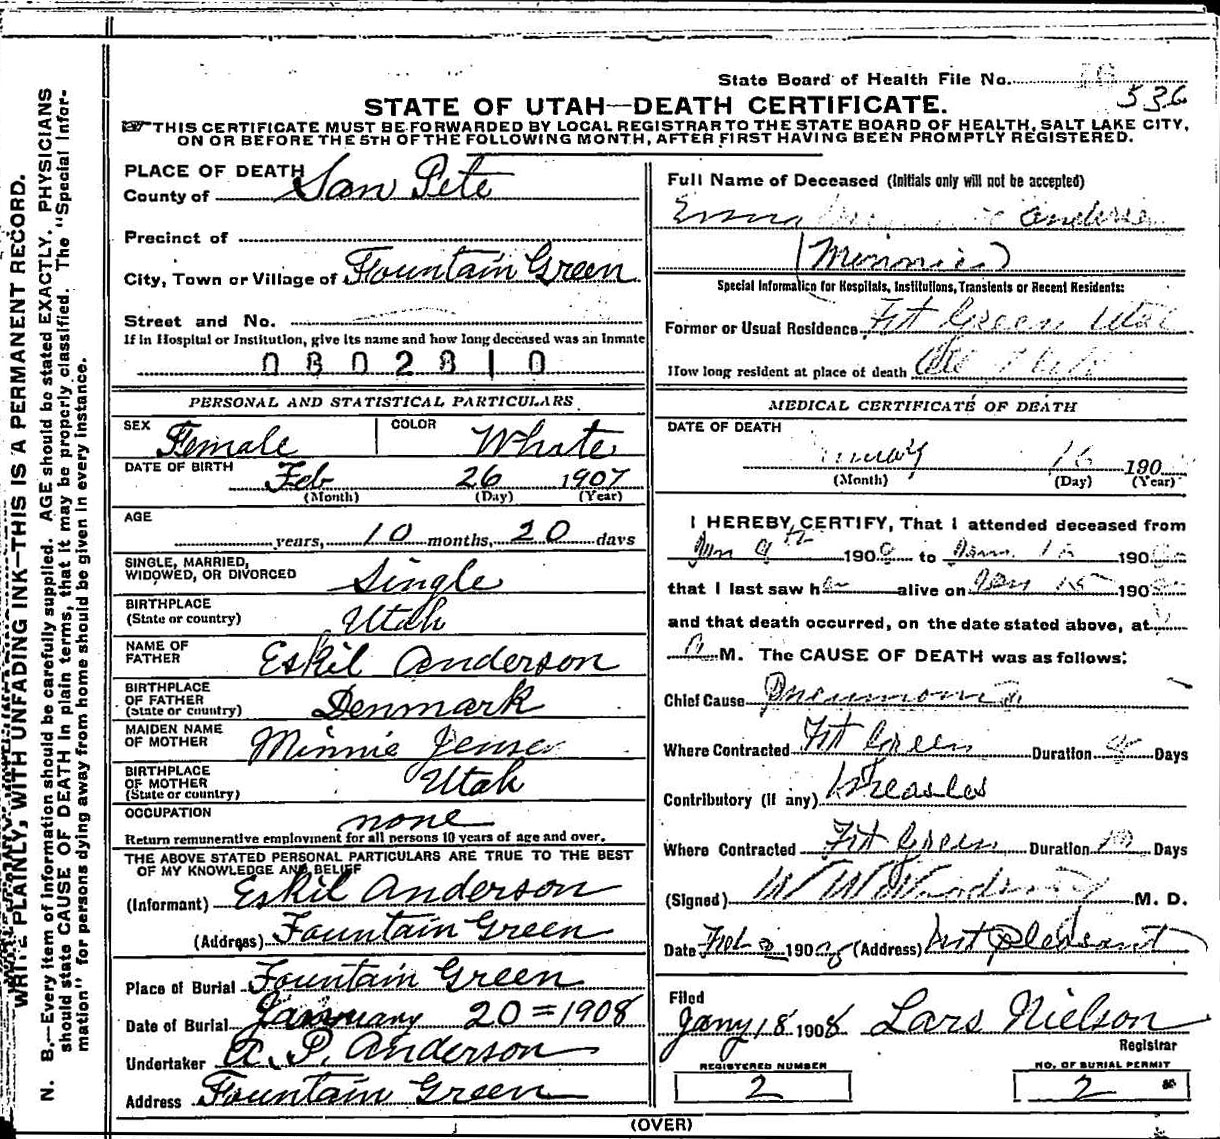 State Board of Health File No.
536
STATE OF UTAH—DEATH CERTIFICATE.
THIS CERTIFICATE MUST BE FORWARDED BY LOCAL REGISTRAR TO THE STATE BOARD OF HEALTH, SALT LAKE CITY,
ON OR BEFORE THE 5TH OF THE FOLLOWING MONTH, AFTER FIRST HAVING BEEN PROMPTLY REGISTERED.
WRITE PLAINLY, WITH UNFADING INK—THIS IS A PERMANENT RECORD.
N. B.—Every item of information should be carefully supplied. AGE should be stated EXACTLY. PHYSICIANS
should state CAUSE OF DEATH in plain terms, that it may be properly classified. The "Special Infor-
mation" for persons dying away from home should be given in every instance.
PLACE OF DEATH
County of San Pete
Precinct of
City, Town or Village of Fountain Green
Street and No.
If in Hospital or Institution, give its name and how long deceased was an Inmate
0802810
PERSONAL AND STATISTICAL PARTICULARS
SEX Female COLOR White
DATE OF BIRTH Feb 26 1907
(Month) (Day) (Year)
AGE
years, 10 months, 20 days
SINGLE, MARRIED,
WIDOWED, OR DIVORCED Single
BIRTHPLACE
(State or country) Utah
NAME OF
FATHER Eskil Anderson
BIRTHPLACE
OF FATHER
(State or country) Denmark
MAIDEN NAME
OF MOTHER Minnie Jense
BIRTHPLACE
OF MOTHER
(State or country) Utah
OCCUPATION none
Return remunerative employment for all persons 10 years of age and over.
THE ABOVE STATED PERSONAL PARTICULARS ARE TRUE TO THE BEST
OF MY KNOWLEDGE AND BELIEF
(Informant) Eskil Anderson
(Address) Fountain Green
Place of Burial Fountain Green
Date of Burial January 20=1908
Undertaker A. P. Anderson
Address Fountain Green
Full Name of Deceased (Initials only will not be accepted)
Emma Anderso
(Minnie)
Special Information for Hospitals, Institutions, Transients or Recent Residents:
Former or Usual Residence Ft Green Utah
How long resident at place of death All
MEDICAL CERTIFICATE OF DEATH
DATE OF DEATH
16 190
(Month) (Day) (Year)
I HEREBY CERTIFY, That I attended deceased from
Jan 9th 1908 to Jan 16 190
that I last saw h alive on Jan 15 190
and that death occurred, on the date stated above, at
M. The CAUSE OF DEATH was as follows:
Chief Cause Pneumonia
Where Contracted Ft Green Duration Days
Contributory (if any) Measles
Where Contracted Ft Green Duration Days
(Signed) M. D.
Date Feb 2 1908 (Address) Mt Pleasant
Filed
Jany 18 1908 Lars Nielson
Registrar
REGISTERED NUMBER
2
NO. OF BURIAL PERMIT
2
(OVER)